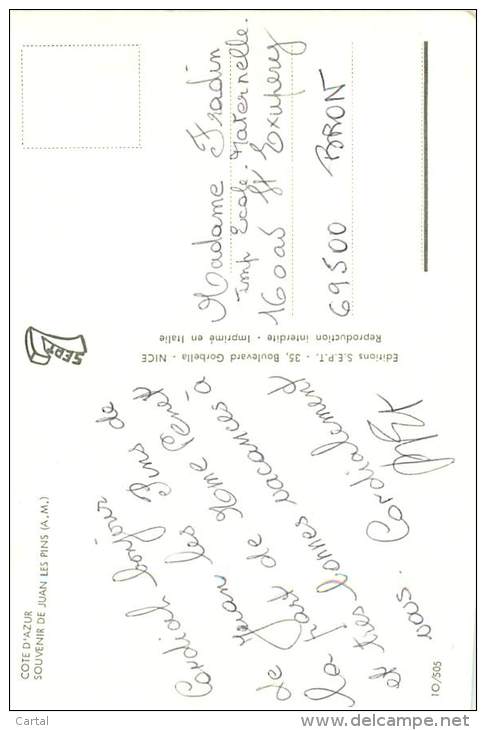 COTE D'AZUR
SOUVENIR DE JUAN LES PINS (A.M.)
Cordial bonjour
de Juan les Pins de
la part de Mme
et très bonnes vacances à
vous. Cordialement
10/505
SEPT
Editions S.E.P.T. - 35, Boulevard Gorbella - NICE
Reproduction interdite - Imprimé en Italie
Madame Fradin
imp Ecole. Maternelle.
16 St Exupery
69500 BRON
Cartal
www.delcampe.net